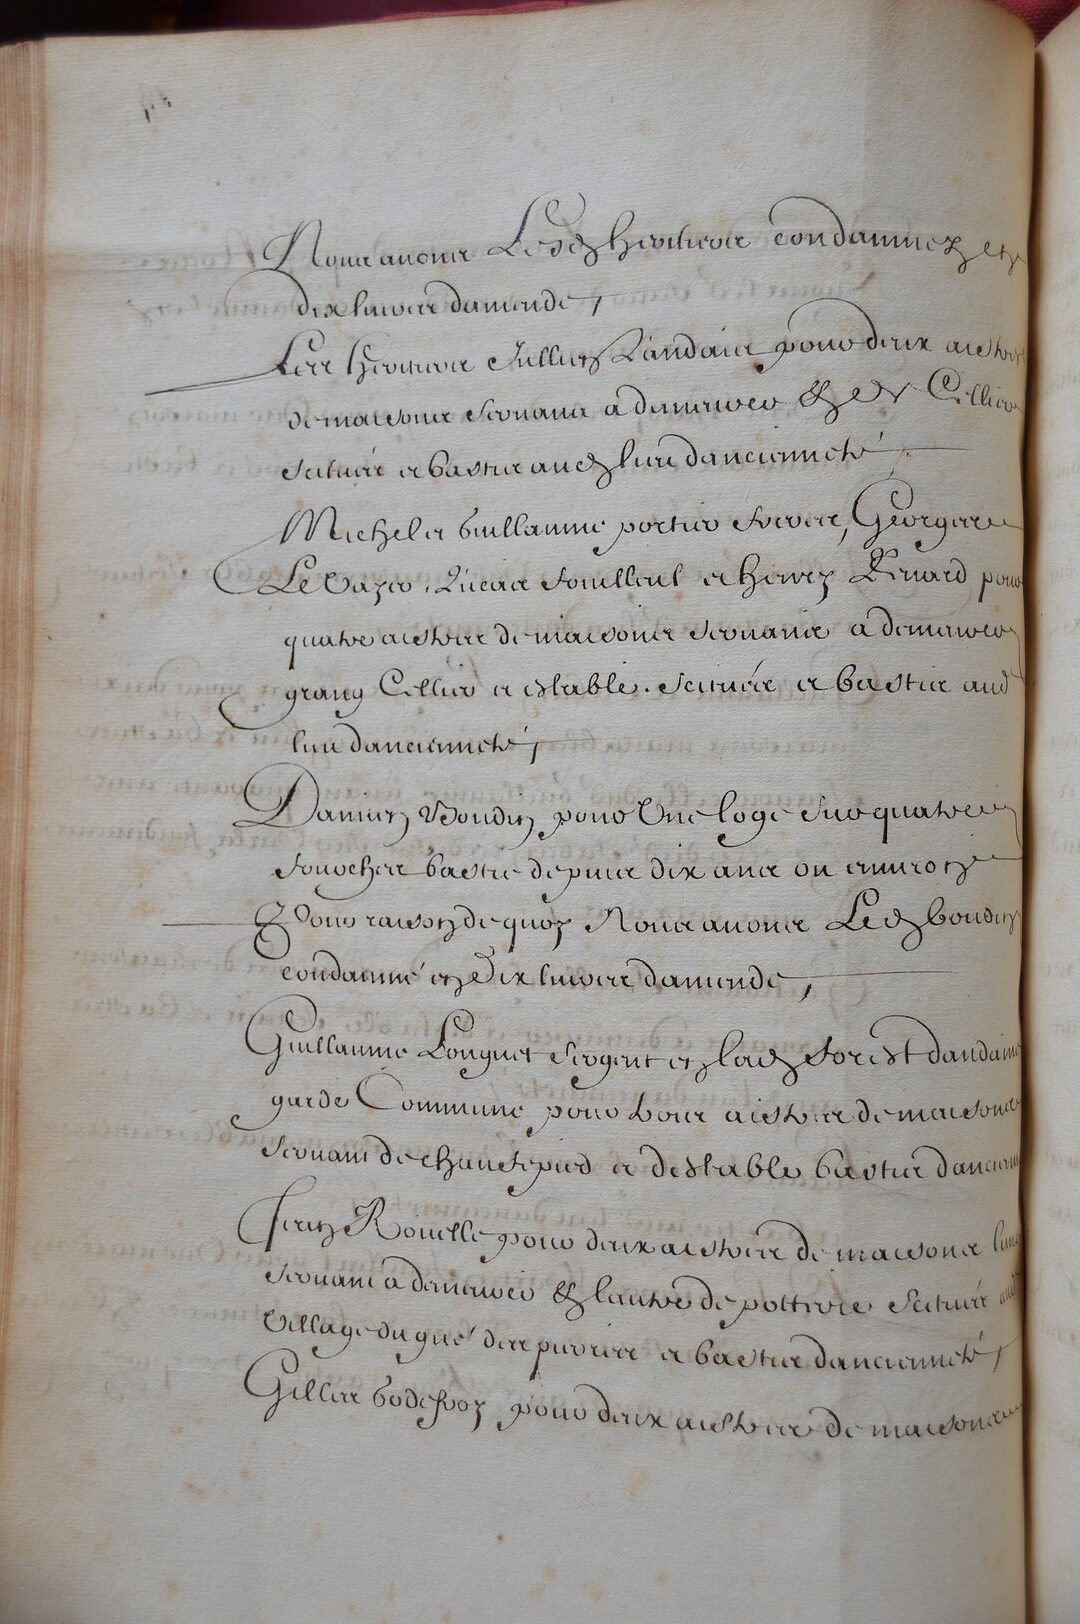 Nous avons Lesd heritiers condamnez en
dix livres damende,
Les heritiers Jullien Landais pour deux aistres
de maisons servans a demeurer & de Cellier
scituée et basties aud lieu dancienneté,
Michel et Guillaume portier freres, Georges
Le Vazeo, Lucas fouilleul et henry Renard pour
quatre aistres de maisons servans a demeurer
grang Cellier et estable. scituée et basties aud
lieu dancienneté,
Damien Boudin pour Une loge sur quatre
fourches bastie depuis dix ans ou environ
Pour raison de quoy Nous avons Led boudin
condamné en Dix livres damende,
Guillaume Longuet sergent en lad forest dandaine
garde Commune pour trois aistres de maisons
servant de chaufepied et destable basties dancienn
Jean Rouelle pour deux aistres de maisons lun
servant a demeurer & lautre de potterie scituée aud
Village du gué des pierres et basties dancienneté,
Gilles Godefroy pour deux aistres de maisons